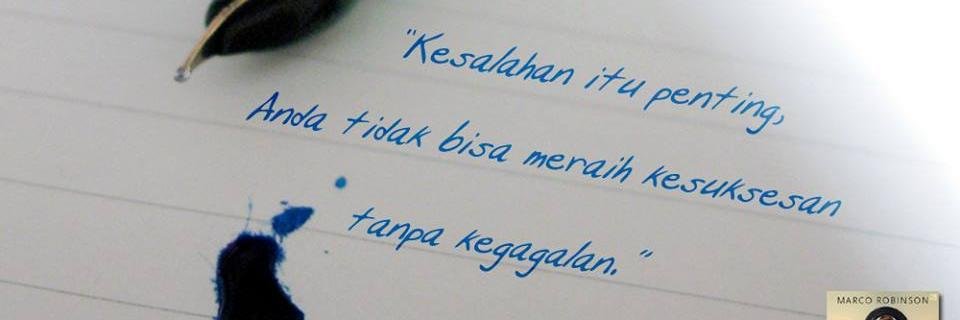 "Kesalahan itu penting,
Anda tidak bisa meraih kesuksesan
tanpa kegagalan."
MARCO ROBINSON